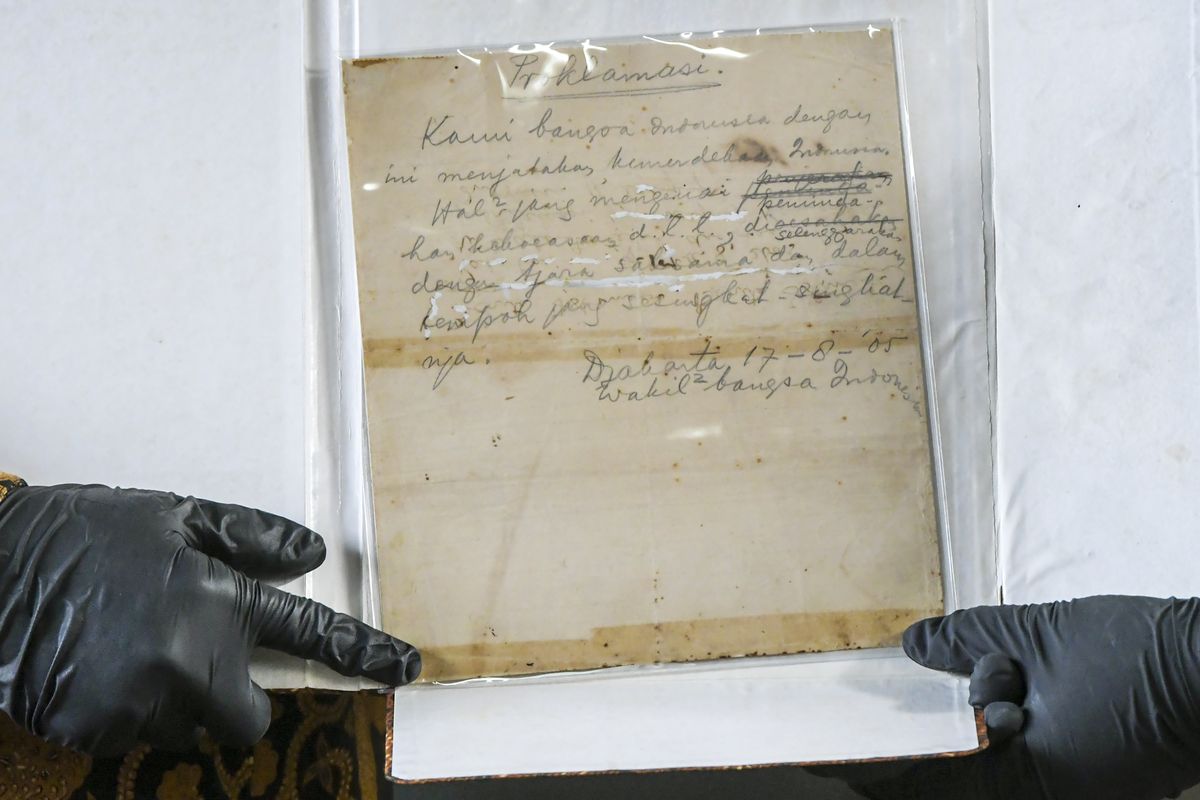 Proklamasi.
Kami bangsa Indonesia dengan
ini menjatakan kemerdekaan Indonesia.
Hal² jang mengenai
peminda-
han kekoeasaan d.l.l., di
selenggarakan
dengan tjara saksama dan dalam
tempoh jang sesingkat-singkat-
nja.
Djakarta 17 - 8 - '05
Wakil² bangsa Indonesia